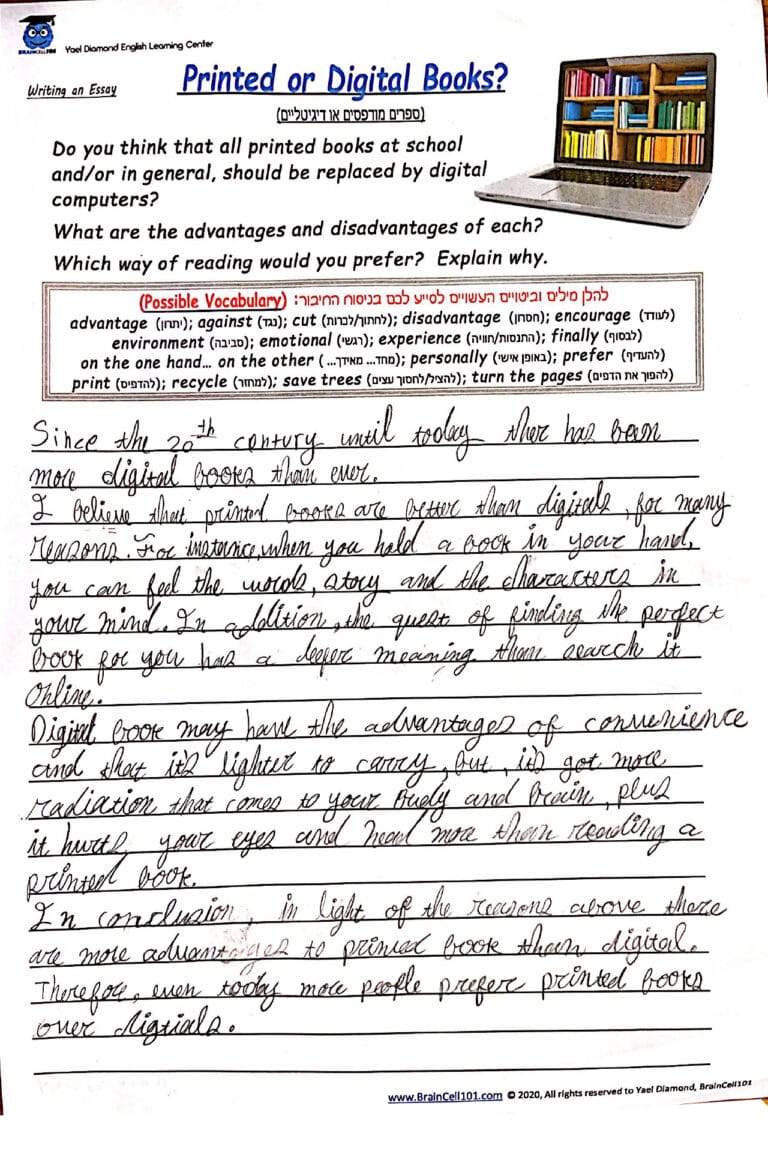 BRAINCELL101
Yael Diamond English Learning Center
Writing an Essay
Printed or Digital Books?
(ספרים מודפסים או דיגיטליים)
Do you think that all printed books at school
and/or in general, should be replaced by digital
computers?
What are the advantages and disadvantages of each?
Which way of reading would you prefer? Explain why.
(Possible Vocabulary) להלן מילים וביטויים העשויים לסייע לכם בניסוח החיבור:
advantage (יתרון); against (נגד); cut (לחתוך/לכרות); disadvantage (חסרון); encourage (לעודד)
environment (סביבה); emotional (רגשי); experience (התנסות/חוויה); finally (לבסוף)
on the one hand... on the other (מחד... מאידך...); personally (באופן אישי); prefer (להעדיף)
print (להדפיס); recycle (למחזר); save trees (להציל/לחסוך עצים); turn the pages (להפוך את הדפים)
Since the 20th century until today ther has been
more digital books than ever.
I believe that printed books are better than digitals, for many
reasons. For instance, when you hold a book in your hand,
you can feel the words, story and the characters in
your mind. In addition, the quest of finding the perfect
book for you has a deeper meaning than search it
online.
Digital book may have the advantages of convenience
and that it's lighter to carry, but, it's got more
radiation that comes to your budy and brain, plus
it hurts your eyes and head more than reading a
printed book.
In conclusion, in light of the reasons above there
are more advantages to printed book than digital.
Therefore, even today more people prefer printed books
over digtials.
www.BrainCell101.com © 2020, All rights reserved to Yael Diamond, BrainCell101